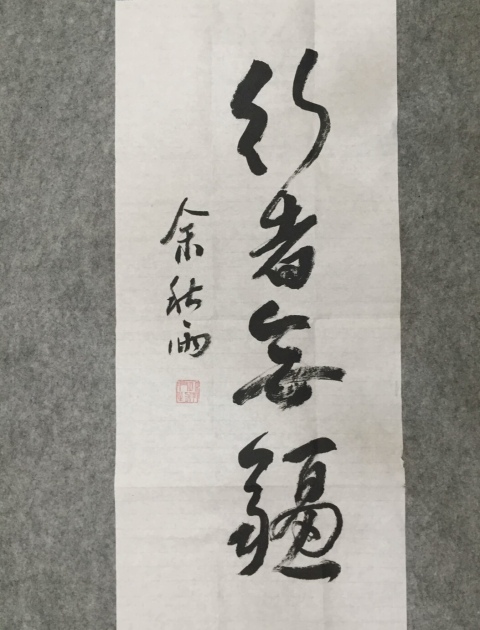 行者無疆
余秋雨